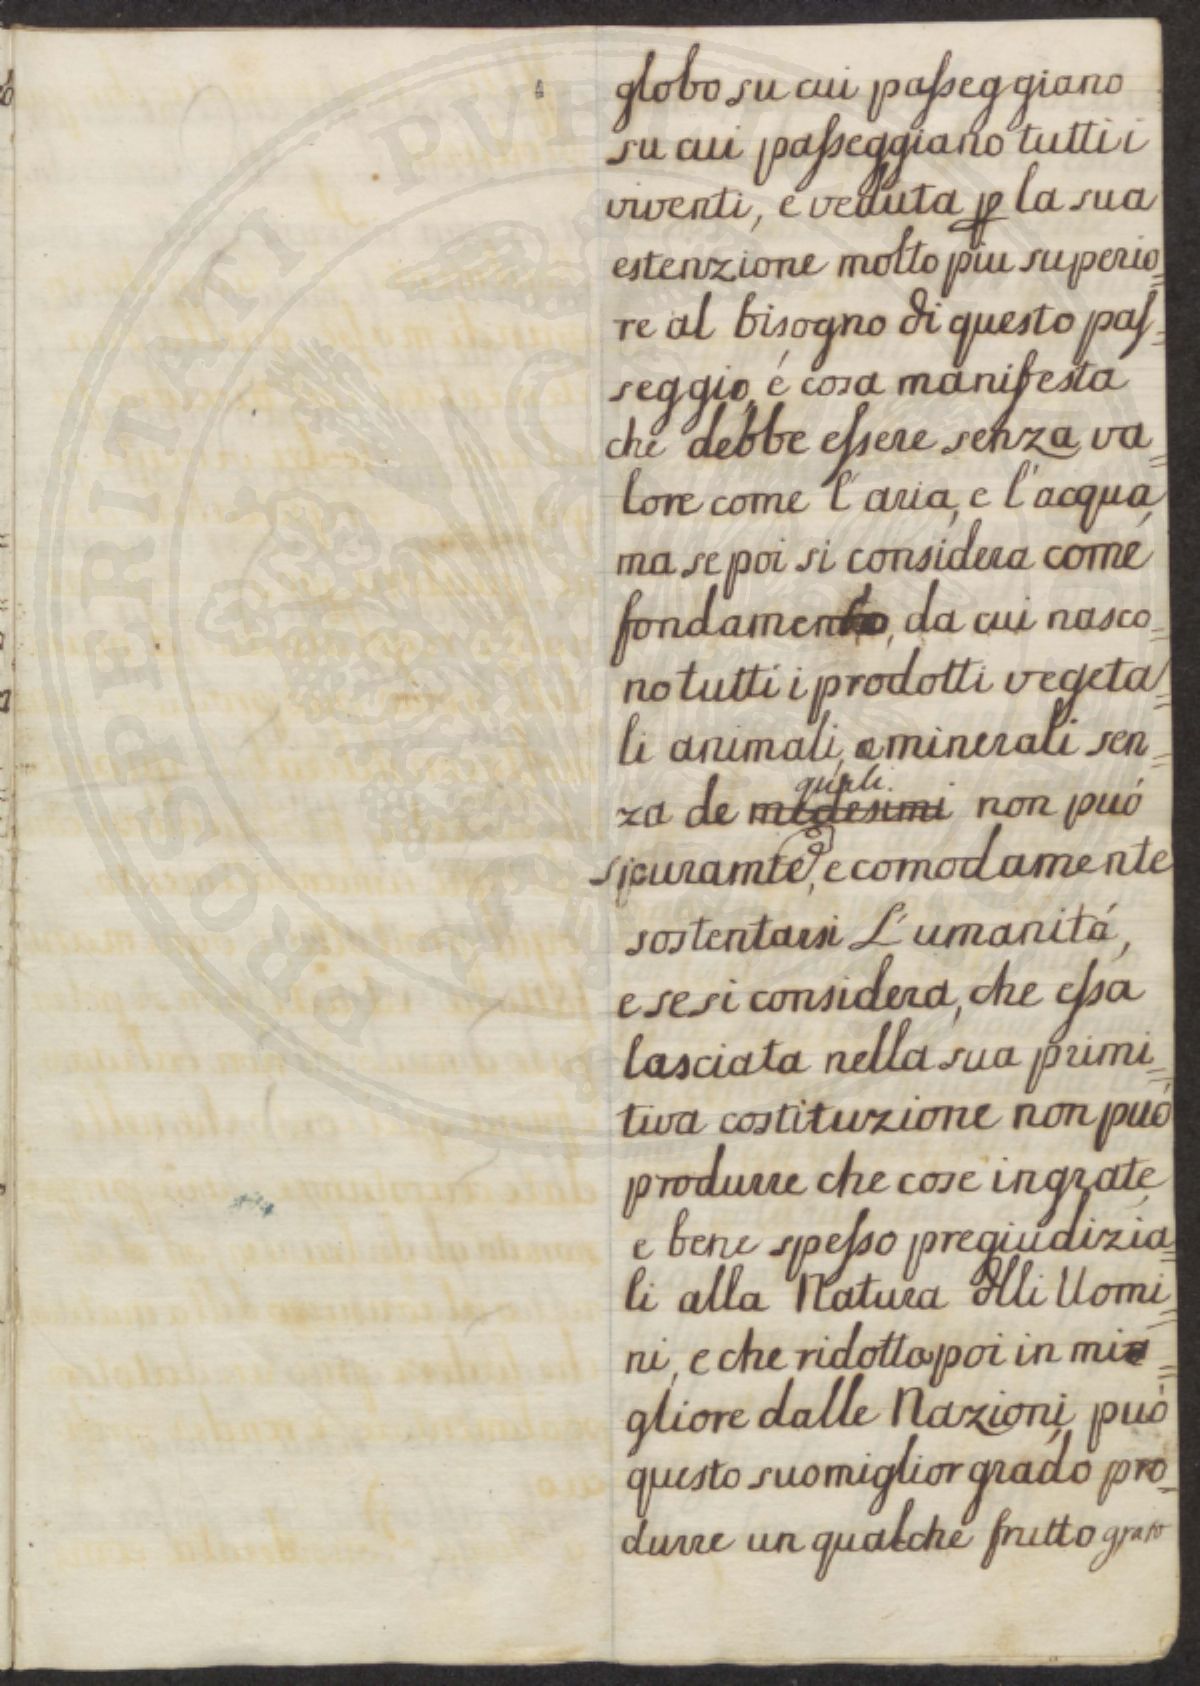 globo su cui passeggiano
su cui passeggiano tutti i
viventi, e veduta p la sua
estenzione molto piu superio=
re al bisogno di questo pas=
seggio, é cosa manifesta
che debbe essere senza va=
lore come l'aria, e l'acqua,
ma se poi si considera come
fondamento, da cui nasco=
no tutti i prodotti vegeta=
li animali, e minerali sen=
quali
za de medesimi non puó
sicuramte, e comodamente
sostentarsi L'umanitá,
e se si considera, che essa
lasciata nella sua primi=
tiva costituzione non puó
produrre che cose ingrate,
e bene spesso pregiudizia=
li alla Natura dlli Uomi=
ni, e che ridotta poi in mi=
gliore dalle Nazioni, puó
questo suo miglior grado pro=
durre un qualche frutto grato
PROSPERITATI PVBL